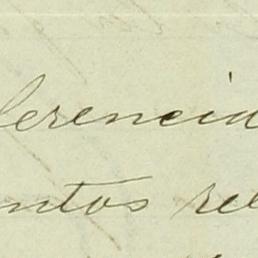 ferencia
entos rel